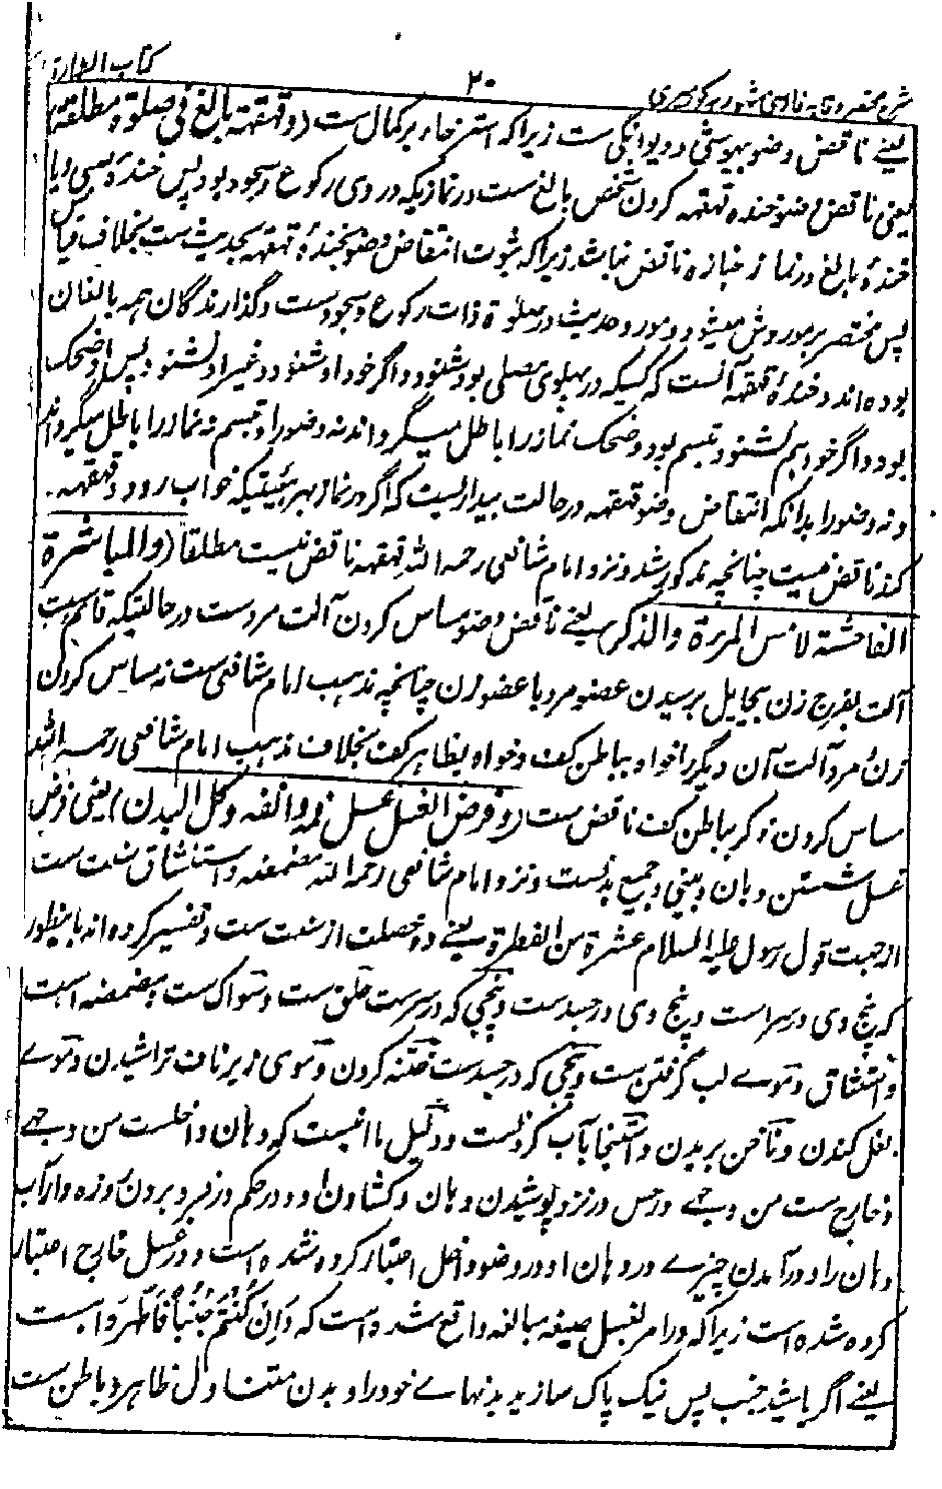 کتاب الطهارة
۲۰
شرح مختصر وقایه فارسی مشهور به کوهسری
یعنے ناقض وضو بیهوشی و دیوانگی ست زیراکه استرخاء بر کمال ست (وقهقهة بالغ فی صلوة مطلقة
یعنی ناقض وضو خنده قهقهه کردن شخص بالغ ست در نمازیکه در وی رکوع و سجود بود پس خندهٔ صبی و یا
خندهٔ بالغ در نماز جنازه ناقض نباشد زیراکه ثبوت انتقاض وضو بخندهٔ قهقهه بحدیث ست بخلاف قیاس
پس مختصر بر موردش میشود و مورد حدیث در صلوة ذات رکوع و سجود ست و گذارندگان همه بالغان
بوده اند و خندهٔ قهقهه آنست که کسیکه در پهلوی مصلی بود شنود و اگر خود او شنود و غیر او نشنود پس او ضحک
بود و اگر خود هم نشنود تبسم بود و ضحک نماز را باطل میگرداند نه وضو را و تبسم نه نماز را باطل میگرداند
و نه وضو را بدانکه انتقاض وضو قهقهه در حالت بیداریست که اگر در نماز بهر هیئتیکه خواب رود و قهقهه
کند ناقض نیست چنانچه مذکور شد و نزد امام شافعی رحمه الله قهقهه ناقض نیست مطلقا (والمباشرة
الفاحشة لامس المرءة والذکر) یعنے ناقض وضو مساس کردن آلت مردست در حالتیکه قائم ست
آلت بفرج زن بحایل برسیدن عضو مرد با عضو زن چنانچه مذهب امام شافعی ست نه مساس کردن
زن و مرد آلت آن دیگر را خواه بباطن کف و خواه بظاهر کف بخلاف مذهب امام شافعی رحمه الله
مساس کردن ذکر بباطن کف ناقض ست (وفرض الغسل غسل فمه وانفه وکل البدن) یعنی فرض
غسل شستن دهان و بینی و جمیع بدنست و نزد امام شافعی رحمه الله مضمضه و استنشاق سنت ست
از جهت قول رسول علیه السلام عشرة من الفطرة یعنے ده خصلت از سنت ست و تفسیر کرده اند باینطور
که پنج وی در سر است و پنج وی در جسد ست و پنجی که در سرست حلق ست و مسواک ست و مضمضه است
و استنشاق و موے لب گرفتن ست و پنجی که در جسد ست ختنه کردن و موی زیر ناف تراشیدن و موے
بغل کندن و ناخن بریدن و استنجا بآب کردنست و دلیل ما اینست که دهان داخلست من وجهے
و خارج ست من وجهے و حس در نزد پوشیدن دهان و کشادن او و در حکم در فرو بردن روزه دار آب
دهان را و در آمدن چیزے در دهان او در وضو داخل اعتبار کرده شده است و در غسل خارج اعتبار
کرده شده است زیراکه در امر بغسل صیغه مبالغه واقع شده است که وَاِنْ کُنْتُمْ جُنُبًا فَاطَّهَّرُوا ست
یعنے اگر باشید جنب پس نیک پاک سازید بدنهاے خود را و بدن متناول ظاهر و باطن ست